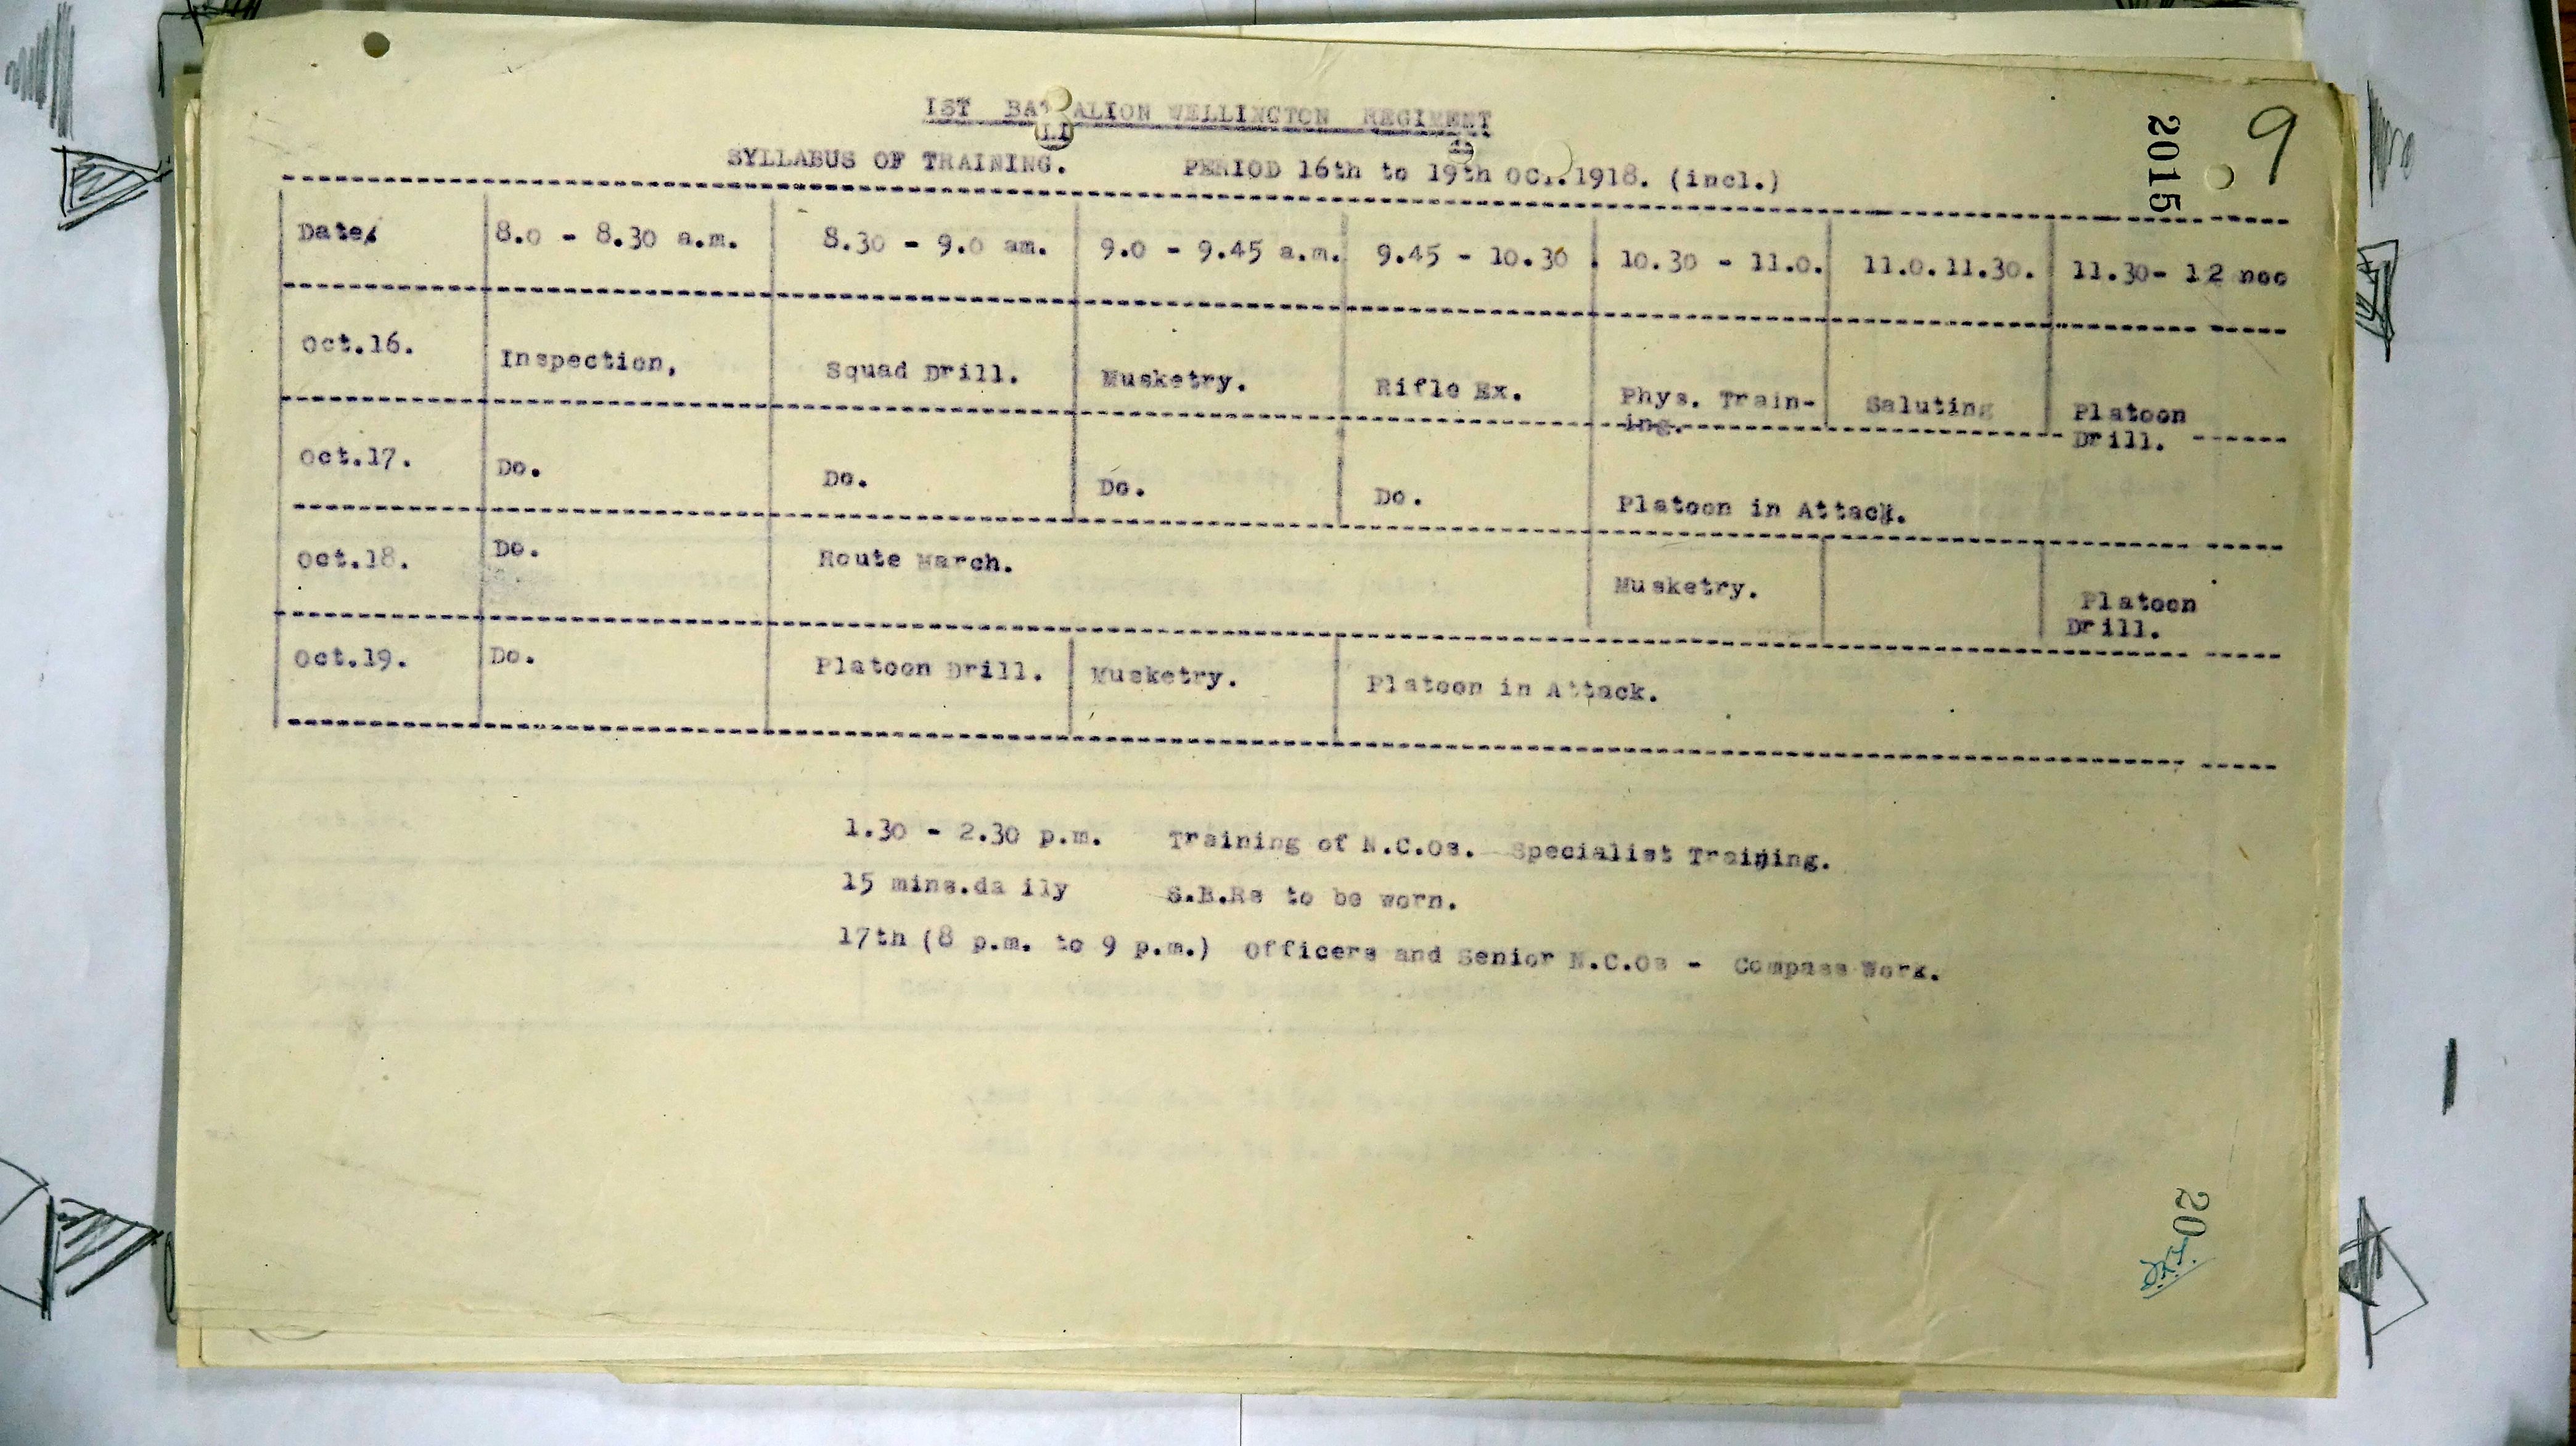 9
2015
1ST BATTALION WELLINGTON REGIMENT
SYLLABUS OF TRAINING. PERIOD 16th to 19th OCT.1918. (incl.)
Date, 8.0 - 8.30 a.m. 8.30 - 9.0 am. 9.0 - 9.45 a.m. 9.45 - 10.30 . 10.30 - 11.0. 11.0.11.30. 11.30- 12 noo
Oct.16. Inspection, Squad Drill. Musketry. Rifle Ex. Phys. Train- Saluting Platoon
ing. Drill.
Oct.17. Do. Do. Do. Do. Platoon in Attack.
Oct.18. Do. Route March. Musketry. Platoon
Drill.
Oct.19. Do. Platoon Drill. Musketry. Platoon in Attack.
1.30 - 2.30 p.m. Training of N.C.Os. Specialist Training.
15 mins.da ily S.B.Rs to be worn.
17th (8 p.m. to 9 p.m.) Officers and Senior N.C.Os - Compass Work.
20